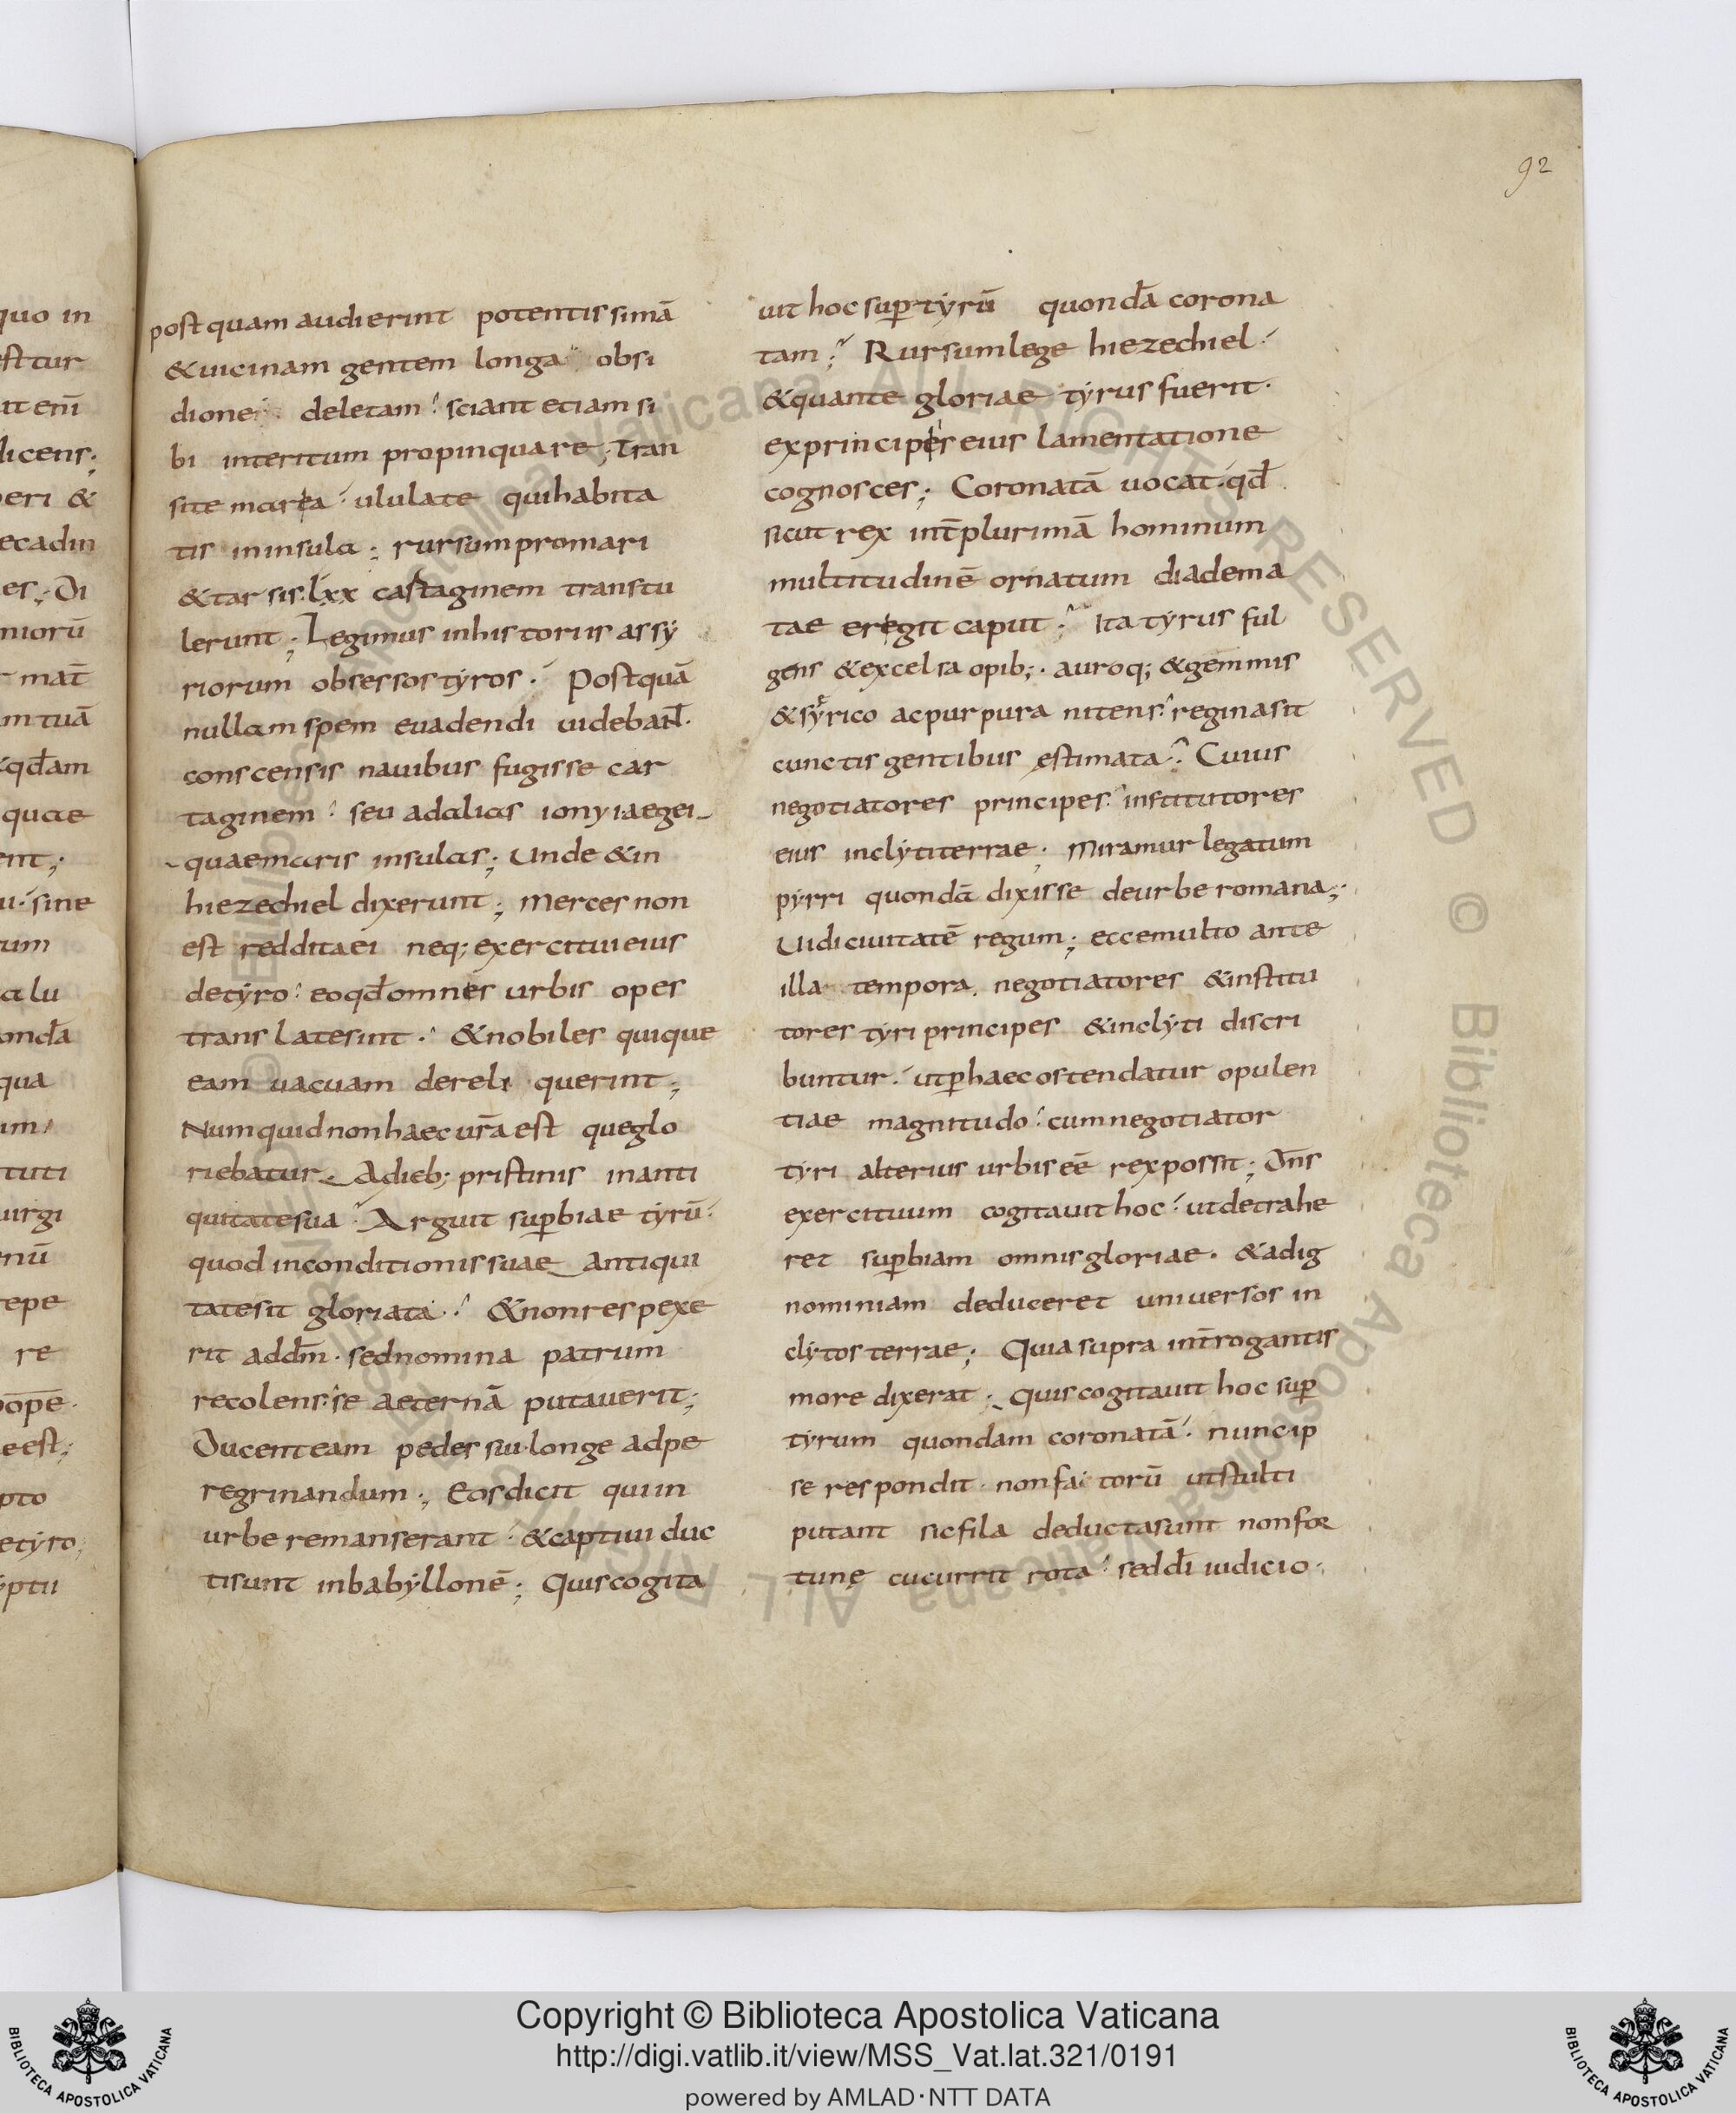 92
quo in
postquam audierint potentissimā
& uicinam gentem longa obsi
dione deletam sciant etiam si
bi interitum propinquare; Tran
site maria ululate qui habita
tis in insula; rursum pro mari
& tarsis lxx castaginem transtu
lerunt; Legimus in historiis assy
riorum obsessos tyros. Postquā
nullam spem euadendi uidebant.
conscensis nauibus fugisse car
taginem seu ad alias iony iaegei
quae maris insulas; Unde & in
hiezechiel dixerunt; Merces non
est reddita ei neq; exercitui eius
de tyro eo qđ omnes urbis opes
translate sint. & nobiles quique
eam uacuam dereli querint;
Numquid non haec ur̄a est que glo
riebatur. A dieb; pristinis in anti
quitate sua Arguit sup̱biae tyrū
quod in conditionis suae antiqui
tate sit gloriata. & non respexe
rit ad dm̄. sed nomina patrum
recolens se aeternā putauerit;
Ducent eam pedes sui longe ad pe
regrinandum; Eos dicit qui in
urbe remanserant & captiui duc
ti sunt in babyllonē; Quis cogita
uit hoc sup̱ tyrū quondā corona
tam; Rursum lege hiezechiel
& quante gloriae tyrus fuerit.
ex principes eius lamentatione
cognosces; Coronatā uocat qđ
sicut rex int̄ plurimā hominum
multitudinē ornatum diadema
tae eregit caput; Ita tyrus ful
gens & excelsa opib; auroq; & gemmis
& syrico ac purpura nitens regina sit
cunctis gentibus estimata. Cuius
negotiatores principes institutores
eius inclyti terrae; Miramur legatum
pyrri quondā dixisse de urbe romana;
Uidi ciuitatē regum; ecce multo ante
illa tempora. negotiatores & institu
tores tyri principes & inclyti discri
buntur. ut p̱ haec ostendatur opulen
tiae magnitudo cum negotiator
tyri alterius urbis eē rex possit; Dn̄s
exercituum cogitauit hoc ut detrahe
ret sup̱biam omnis gloriae. & ad ig
nominiam deduceret uniuersos in
clytos terrae; Quia supra int̄rogantis
more dixerat; Quis cogitauit hoc sup̱
tyrum quondam coronatā nunc ip
se respondit non fa torū ut stulti
putant sic fila deducta sunt non for
tunę cucurrit rota sed dī iudicio
Copyright © Biblioteca Apostolica Vaticana
http://digi.vatlib.it/view/MSS_Vat.lat.321/0191
powered by AMLAD·NTT DATA
BIBLIOTECA APOSTOLICA VATICANA
BIBLIOTECA APOSTOLICA VATICANA